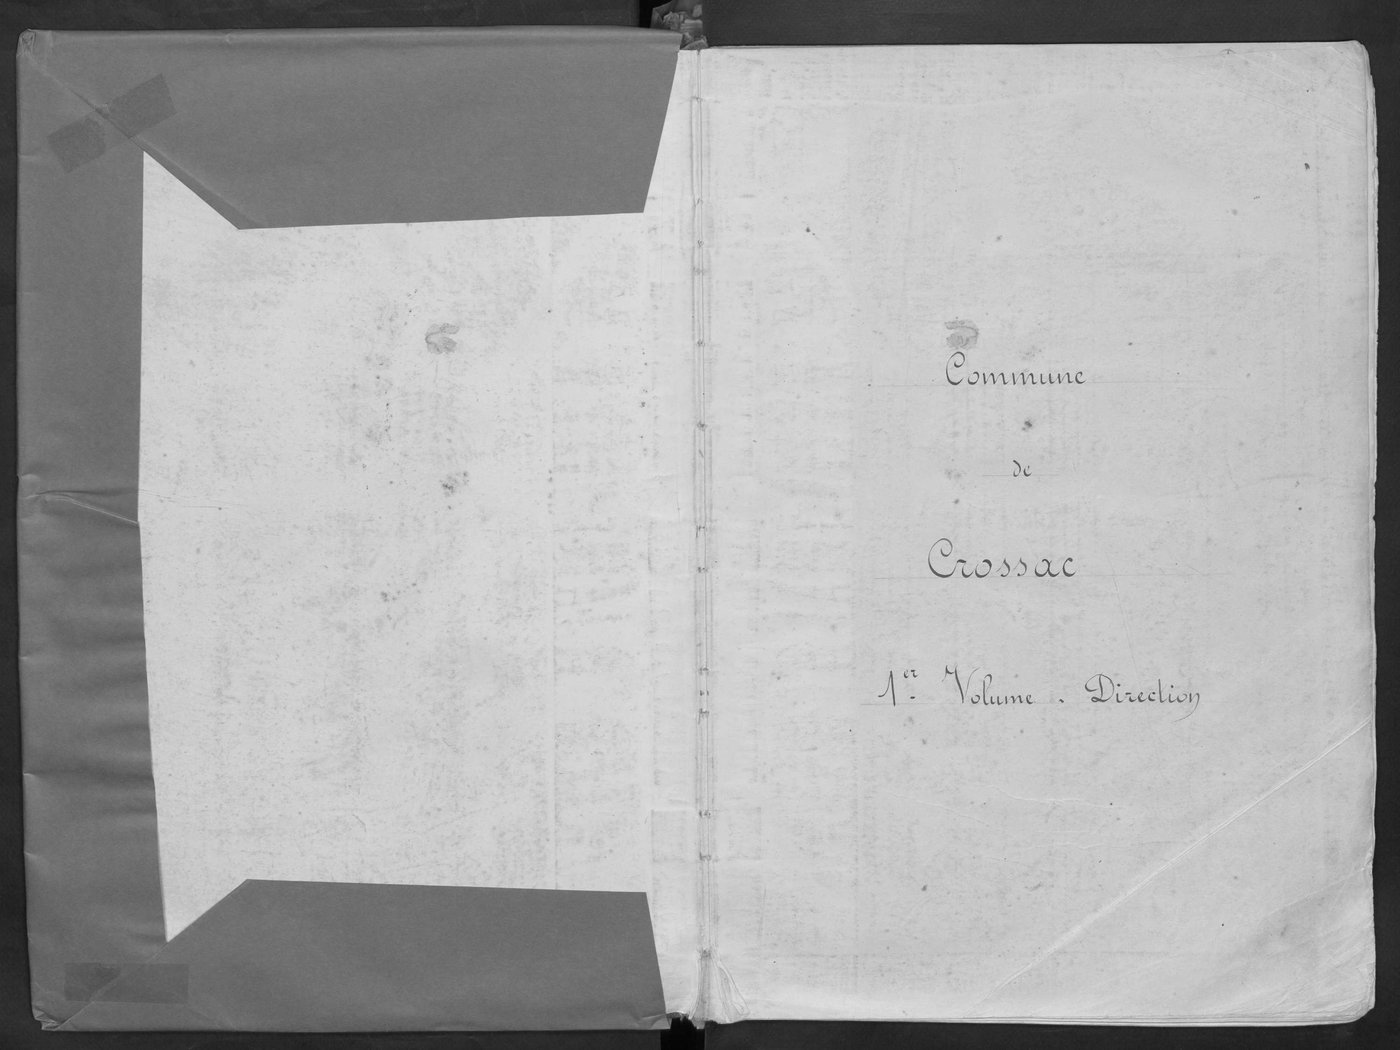 Commune
de
Crossac
1er Volume . Direction